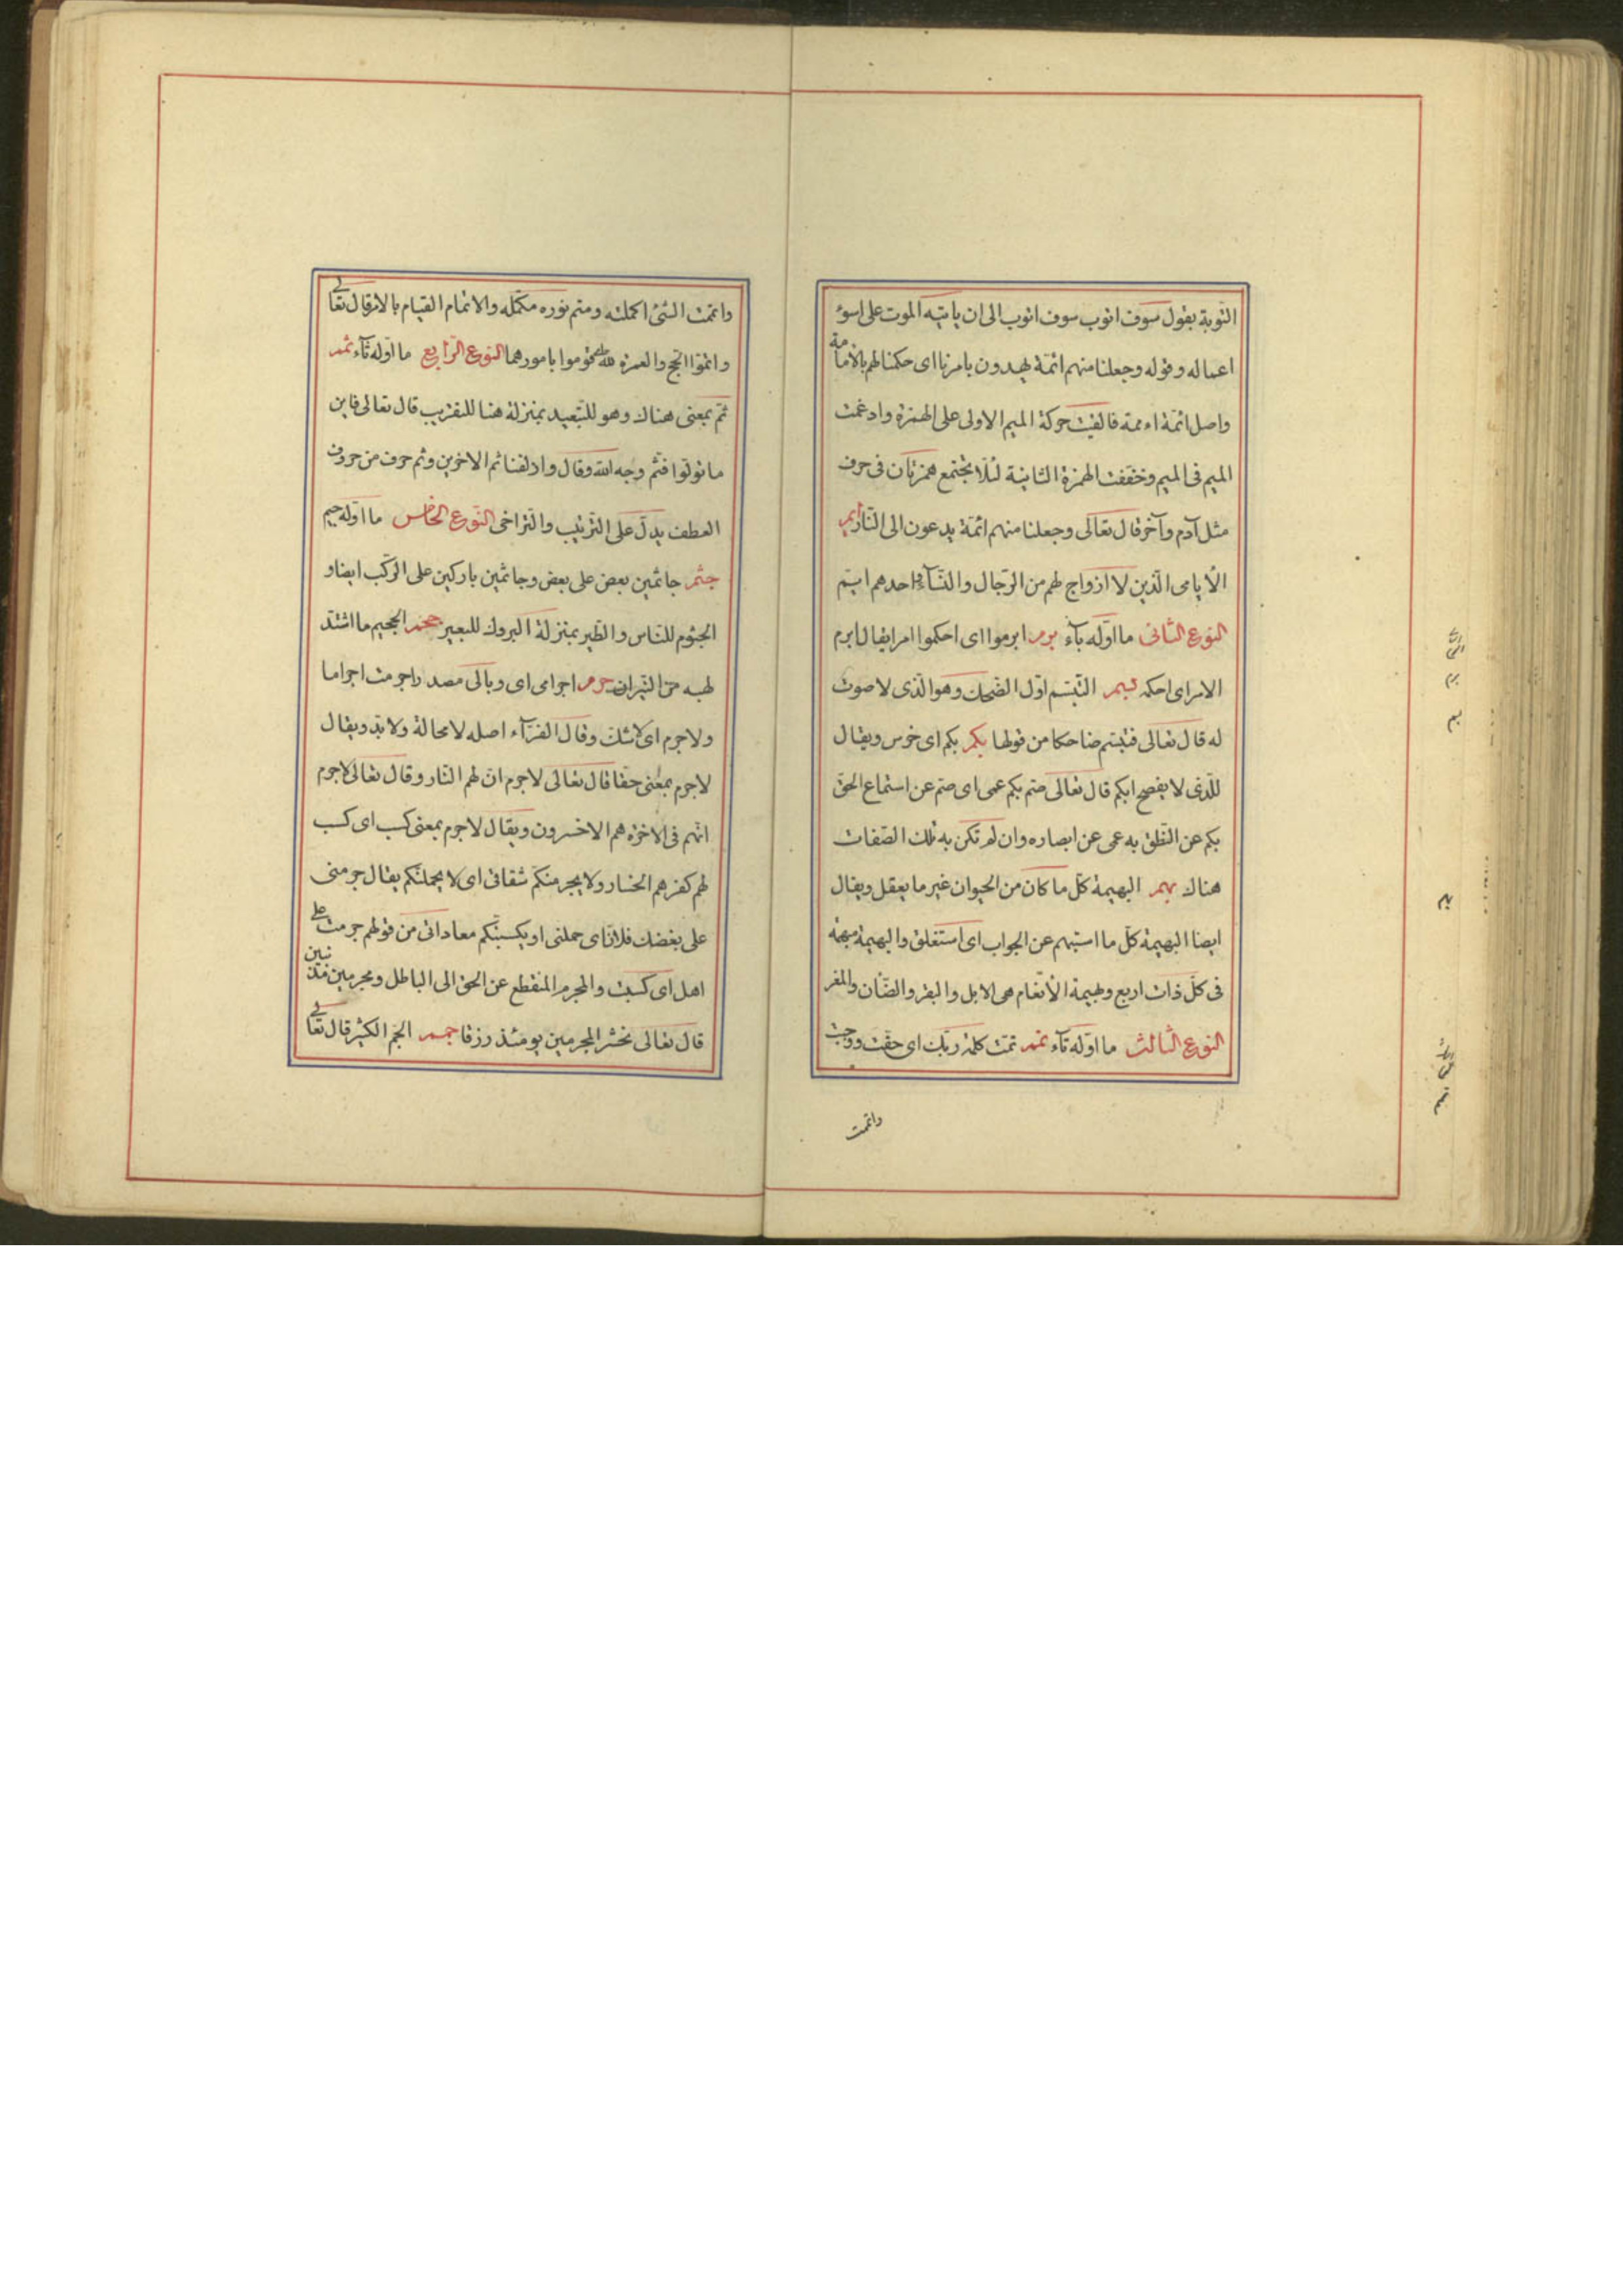 التّوبة يقول سوف اتوب سوف اتوب الى ان ياتيه الموت على اسوء
اعماله وقوله وجعلنا منهم ائمّة يهدون بامرنا اى حكمنا لهم بالأمامة
واصل ائمّة اءممة فالقيت حركة الميم الاولى على الهمزة وادغمت
الميم فى الميم وخففت الهمزة الثانية لئلّا يجتمع همزتان فى حرف
مثل آدم وآخر قال تعالى وجعلنا منهم ائمّة يدعون الى النّار ايم
الأيامى الّذين لا ازواج لهم من الرّجال والنّسآء واحدهم ايّم
النوع الثانى ما اوّله بآء برم ابرموا اى احكموا امرا يقال ابرم
الامر اى احكمه بسم التبّسم اوّل الضّحك وهو الّذى لا صوت
له قال تعالى فتبسّم ضاحكا من قولها بكم بكم اى خرس ويقال
للّذى لا يفصح ابكم قال تعالى صّم بكم عمى اى صّم عن استماع الحقّ
بكم عن النّطق به عمى عن ابصاره وان لم تكن به تلك الصّفات
هناك بهم البهيمة كلّ ما كان من الحيوان غير ما يعقل ويقال
ايضا البهيمة كلّ ما استبهم عن الجواب اى استغلق والبهيمة مبهمة
فى كلّ ذات اربع وبهيمة الأنعام هى الابل والبقر والضّان والمغر
النوع الثالث ما اوّله تآء تمم تمّت كلمة ربّك اى حقّت ووجبت
واتممت
واتممت الشّئ اكملته ومتم نوره مكمّله والاتمام القيام بالامر قال تعالى
واتمّوا الحّج والعمرة لله اى قوموا بامورهما النوع الرّابع ما اوّله ثآء ثمم
ثمّ بمعنى هناك وهو للتبعيد بمنزلة هنا للتقريب قال تعالى فاين
ما تولّوا فثمّ وجه الله وقال وازلفنا ثم الاخرين وثم حرف من حروف
العطف يدلّ على التّرتيب والتّراخى النّوع الخامس ما اوّله جيم
جثم جاثمين بعض على بعض وجاثمين باركين على الرّكب ايضا و
الجثوم للنّاس والطّير بمنزلة البروك للبعير جحم الجحيم ما اشتدّ
لهبه من النّيران جرم اجرامى اى وبالى مصدر اجرمت اجراما
ولا جرم اى لا شكّ وقال الفرّآء اصله لا محالة ولا بدّ ويقال
لا جرم بمعنى حقّا قال تعالى لا جرم انّ لهم النّار وقال تعالى لا جرم
انّهم فى الاخرة هم الاخسرون ويقال لا جرم بمعنى كسب اى كسب
لهم كفرهم الخسار ولا يجرمنكم شقاقى اى لا يحملنّكم يقال جرمنى
على بغضك فلان اى حملنى او يكسبنّكم معاداتى من قولهم جرمت على
اهل اى كسبت والمجرم المنقطع عن الحقّ الى الباطل ومجرمين مذنبين
قال تعالى نحشر المجرمين يومئذ زرقا جمم الجّم الكثير قال تعالى
برم
بسم
بكم